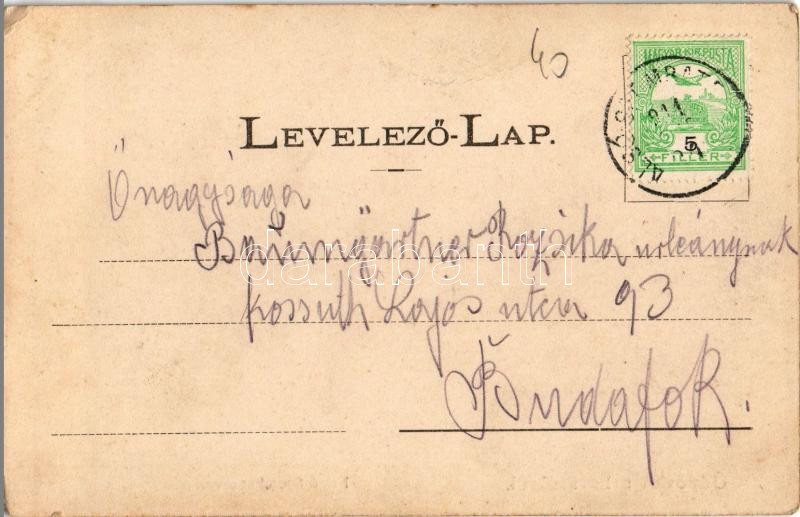 40
MAGYAR KIR. POSTA
5
FILLÉR
LEVELEZŐ-LAP.
Őnagysága
Baumgartner Rozsika urleánynak
Kossuth Lajos utca 93
Budafok.
darabanth